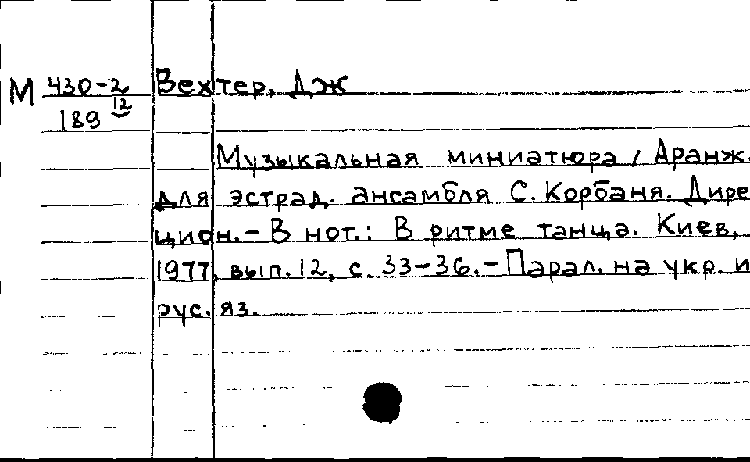 М 430-2 Вехтер, Дж
189 12
Музыкальная миниатюра / Аранж.
для эстрад. ансамбля С. Корбаня. Дире
цион. - В нот.: В ритме танца. Киев,
1977, вып. 12, с. 33-36. - Парал. на укр. и
рус. яз.